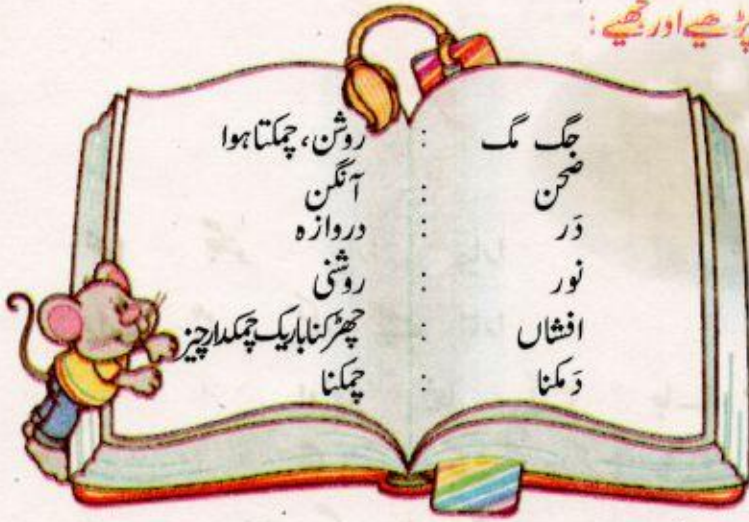 پڑھیے اور سمجھیے :
جگ مگ : روشن، چمکتا ہوا
صحن : آنگن
دَر : دروازہ
نور : روشنی
افشاں : چھڑکنا باریک چمکدار چیز
دَمکنا : چمکنا